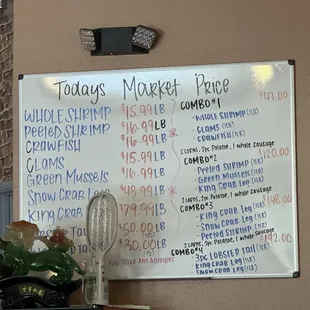 Todays Market Price
WHOLE SHRIMP $15.99LB
Peeled SHRIMP $16.99LB
CRAWFISH $16.99LB
CLAMS $15.99LB
Green Mussels $16.99LB
Snow Crab Legs $48.99LB
King Crab $79.99LB
$50.00
$30.00LB
You Have Any Allergies
COMBO #1 $47.00
- Whole Shrimp (1LB)
- Clams (1LB)
- Crawfish (1LB)
2 Corns, 3pc Potatoe, 1 whole Sausage
COMBO #2 $120.00
- Peeled Shrimp (1LB)
- Green Mussels (1LB)
- King Crab Leg (1LB)
2 Corns, 3pc Potatoe, 1 whole Sausage
COMBO #3 $148.00
- King Crab Leg (1LB)
- Peeled Shrimp (1LB)
- Snow Crab Leg (1LB)
2 Corns, 3pc Potatoe, 1 whole Sausage
COMBO #4 $192.00
- 3pc Lobster Tail (1LB)
- King Crab Leg (1LB)
- Snow Crab Leg (1LB)